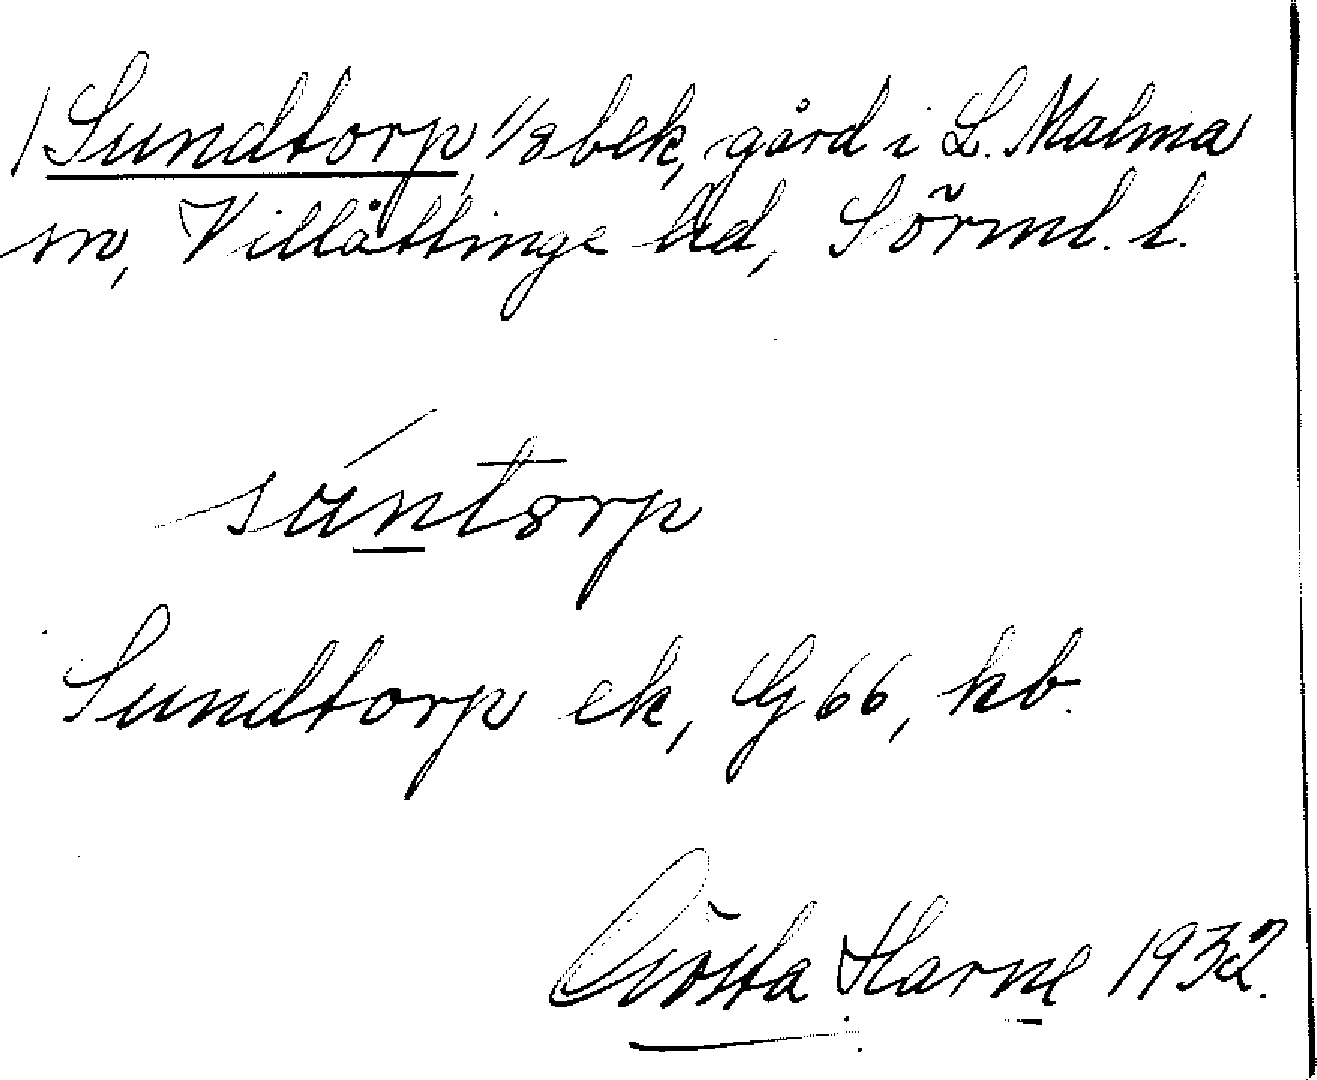 Sundtorp, 1/8 bek, gård i L. Malma
sn, Villåttinge hd, Sörml. l.
súntorp
Sundtorp ek, G 66, kb.
Gösta Harne 1932.